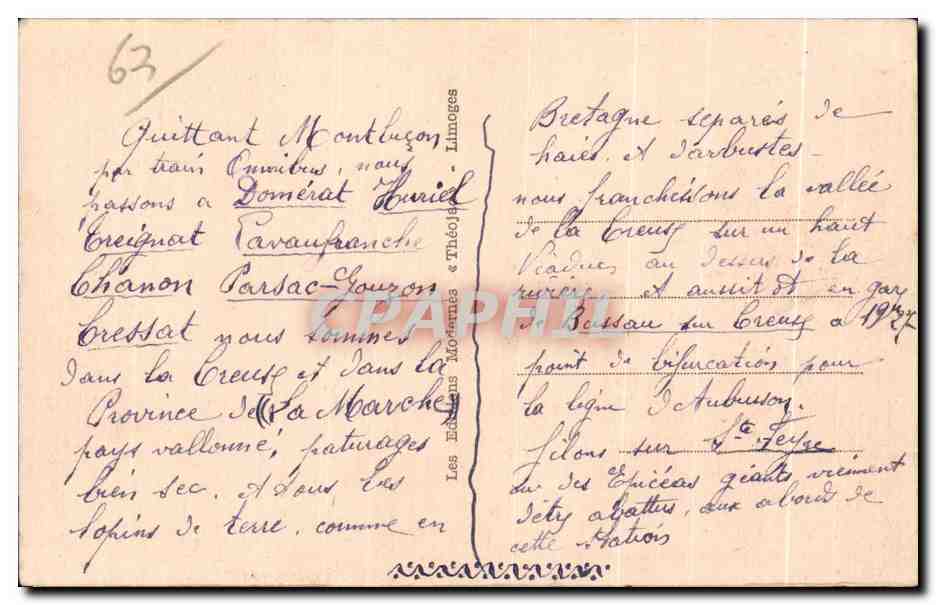 63
Quittant Montluçon
par train Omnibus, nous
passons a Domérat Huriel
Treignat Lavaufranche
Chanon Parsac-Gouzon
Cressat nous sommes
dans la Creuse et dans la
Province de (La Marche)
pays vallonné, paturages
bien sec. et tous les
lopins de terre, comme en
Les Editions Modernes « Théojac » Limoges
CPAPHIL
Bretagne separés de
haies. et d'arbustes -
nous franchissons la vallée
de la Creuse sur un haut
Viaduc, au dessus de la
rivière et aussitôt en gare
de Bussau sur Creuse a 19h27
point de bifurcation pour
la ligne d'Aubusson.
filons sur Ste Feyre
ou des Epicéas géants viennent
d'être abattus, aux abords de
cette station